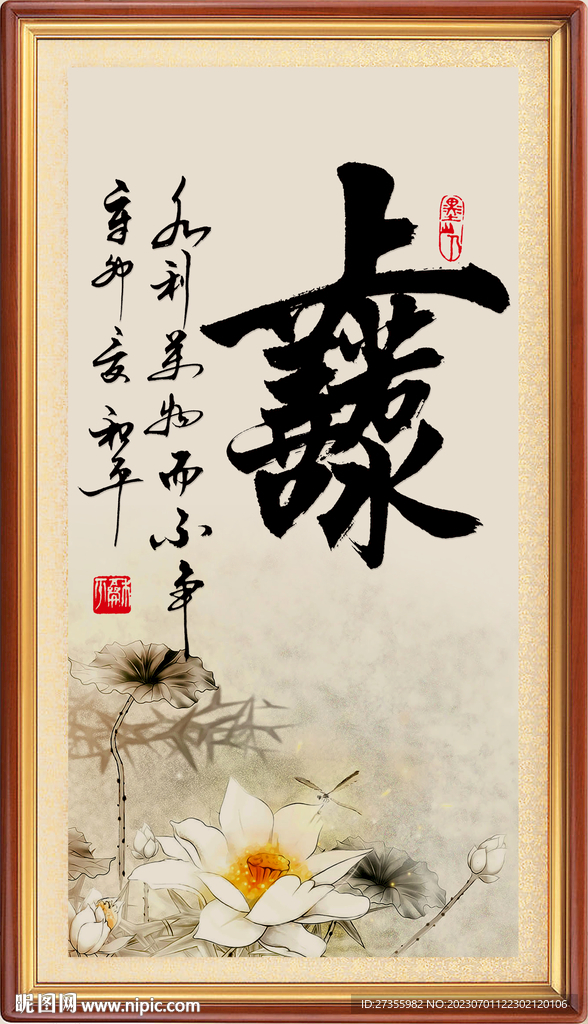 上善若水
水利萬物而不争
辛卯夏和平
昵图网 www.nipic.com
ID:27355982 NO:20230701122302120106